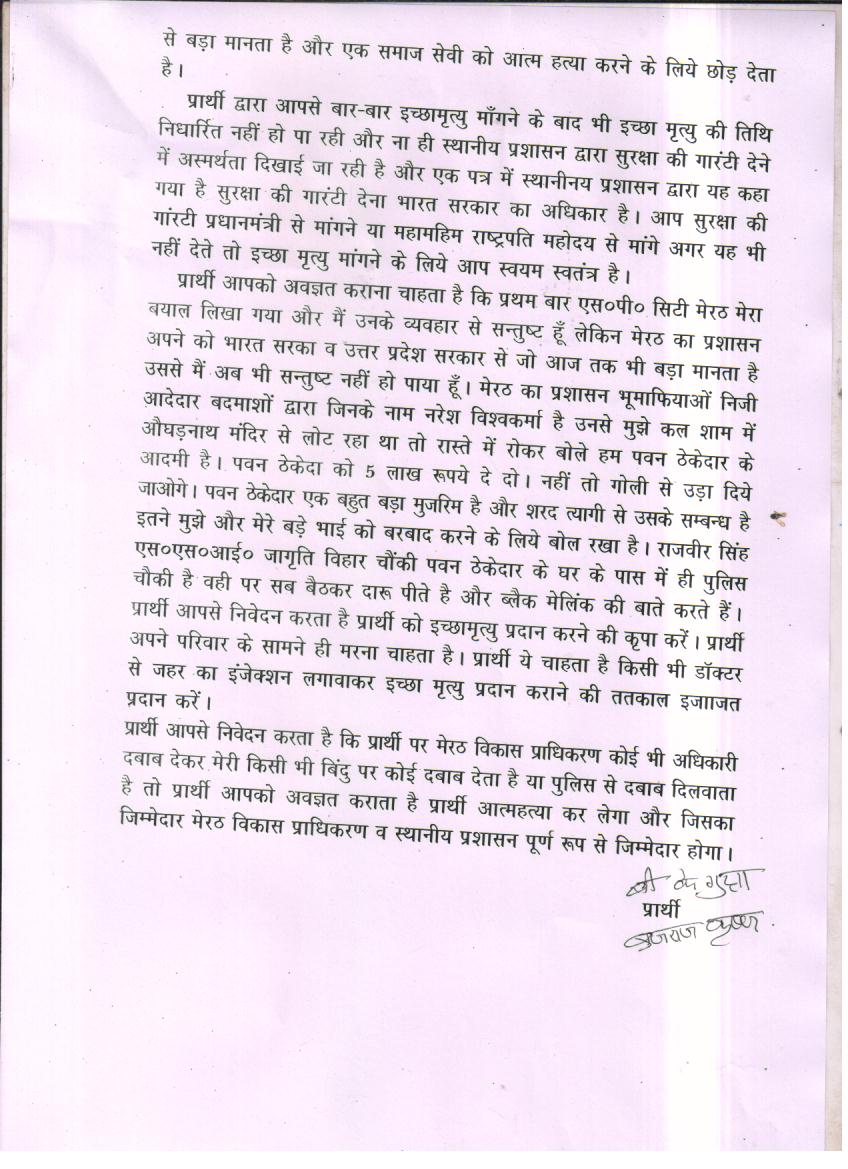 से बड़ा मानता है और एक समाज सेवी को आत्म हत्या करने के लिये छोड़ देता
है।
प्रार्थी द्वारा आपसे बार-बार इच्छामृत्यु माँगने के बाद भी इच्छा मृत्यु की तिथि
निधारित नहीं हो पा रही और ना ही स्थानीय प्रशासन द्वारा सुरक्षा की गारंटी देने
में अस्मर्थता दिखाई जा रही है और एक पत्र में स्थानीनय प्रशासन द्वारा यह कहा
गया है सुरक्षा की गारंटी देना भारत सरकार का अधिकार है। आप सुरक्षा की
गांरटी प्रधानमंत्री से मांगने या महामहिम राष्ट्रपति महोदय से मांगे अगर यह भी
नहीं देते तो इच्छा मृत्यु मांगने के लिये आप स्वयम स्वतंत्र है।
प्रार्थी आपको अवज्ञत कराना चाहता है कि प्रथम बार एस०पी० सिटी मेरठ मेरा
बयाल लिखा गया और मैं उनके व्यवहार से सन्तुष्ट हूँ लेकिन मेरठ का प्रशासन
अपने को भारत सरका व उत्तर प्रदेश सरकार से जो आज तक भी बड़ा मानता है
उससे मैं अब भी सन्तुष्ट नहीं हो पाया हूँ। मेरठ का प्रशासन भूमाफियाओं निजी
आदेदार बदमाशों द्वारा जिनके नाम नरेश विश्वकर्मा है उनसे मुझे कल शाम में
औघड़नाथ मंदिर से लोट रहा था तो रास्ते में रोकर बोले हम पवन ठेकेदार के
आदमी है। पवन ठेकेदा को 5 लाख रूपये दे दो। नहीं तो गोली से उड़ा दिये
जाओगे। पवन ठेकेदार एक बहुत बड़ा मुजरिम है और शरद त्यागी से उसके सम्बन्ध है
इतने मुझे और मेरे बड़े भाई को बरबाद करने के लिये बोल रखा है। राजवीर सिंह
एस०एस०आई० जागृति विहार चौंकी पवन ठेकेदार के घर के पास में ही पुलिस
चौकी है वही पर सब बैठकर दारू पीते है और ब्लैक मेलिंक की बाते करते हैं।
प्रार्थी आपसे निवेदन करता है प्रार्थी को इच्छामृत्यु प्रदान करने की कृपा करें। प्रार्थी
अपने परिवार के सामने ही मरना चाहता है। प्रार्थी ये चाहता है किसी भी डॉक्टर
से जहर का इंजेक्शन लगावाकर इच्छा मृत्यु प्रदान कराने की ततकाल इजााजत
प्रदान करें।
प्रार्थी आपसे निवेदन करता है कि प्रार्थी पर मेरठ विकास प्राधिकरण कोई भी अधिकारी
दबाब देकर मेरी किसी भी बिंदु पर कोई दबाब देता है या पुलिस से दबाब दिलवाता
है तो प्रार्थी आपको अवज्ञत कराता है प्रार्थी आत्महत्या कर लेगा और जिसका
जिम्मेदार मेरठ विकास प्राधिकरण व स्थानीय प्रशासन पूर्ण रूप से जिम्मेदार होगा।
बी के गुप्ता
प्रार्थी
ब्रजराज कृष्ण